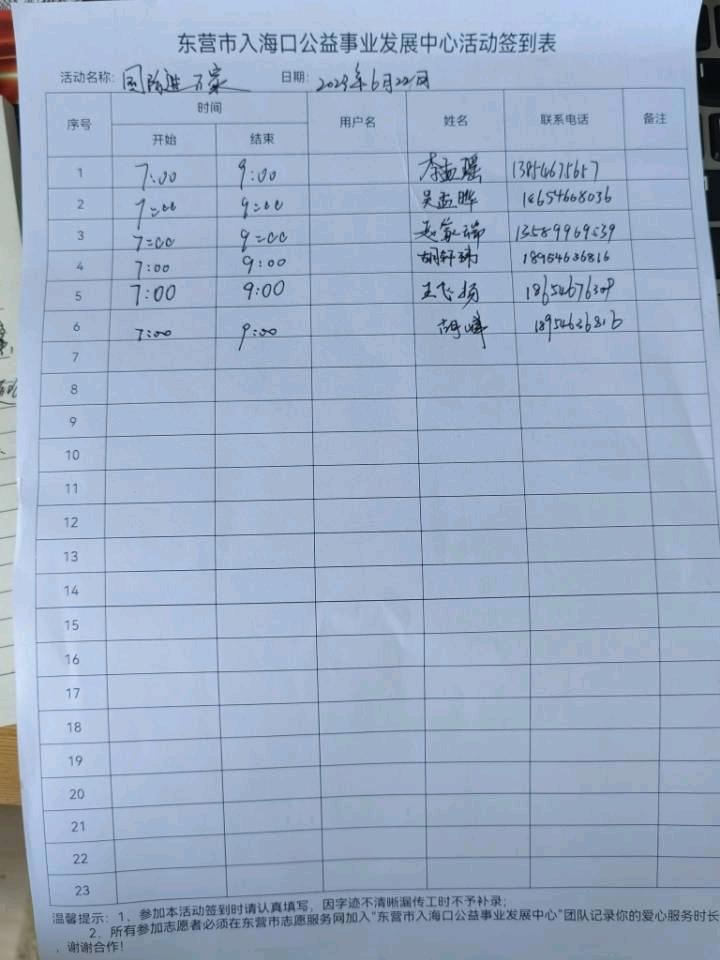 东营市入海口公益事业发展中心活动签到表
活动名称: 国际进万家 日期: 2023年6月22日
序号 时间 用户名 姓名 联系电话 备注
开始 结束
1 7:00 9:00 李孟瑶 13854675657
2 7:00 9:00 吴孟晔 18654608036
3 7:00 9:00 13589969539
4 7:00 9:00 胡轩玮 18954636816
5 7:00 9:00 王飞扬 18654676309
6 7:00 9:00 胡峰 18954636816
7
8
9
10
11
12
13
14
15
16
17
18
19
20
21
22
23
温馨提示：1、参加本活动签到时请认真填写，因字迹不清晰漏传工时不予补录；
2、所有参加志愿者必须在东营市志愿服务网加入“东营市入海口公益事业发展中心”团队记录你的爱心服务时长
，谢谢合作！